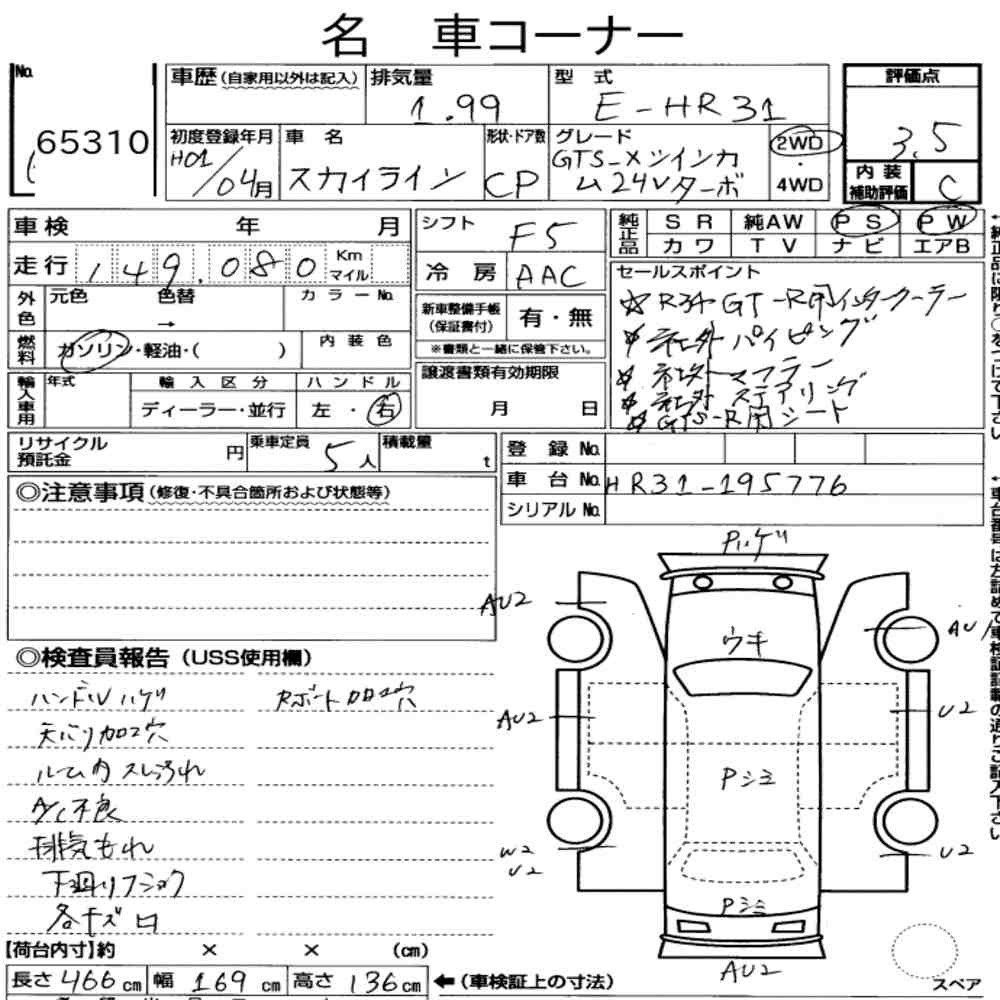 名 車コーナー
No. 65310
車歴(自家用以外は記入) 排気量 型式 評価点
1.99 E-HR31 3.5
初度登録年月 車名 形状・ドア数 グレード 2WD・4WD
H01/04月 スカイライン CP GTS-Xツインカム24Vターボ
内装補助評価 C
車検 年 月
走行 149,080 Km マイル
外色 元色 色替 → カラーNo.
燃料 ガソリン・軽油・( ) 内装色
輸入車用 年式 輸入区分 ハンドル
ディーラー・並行 左・右
シフト F5
冷房 AAC
新車整備手帳(保証書付) 有・無
※書類と一緒に保管下さい。
譲渡書類有効期限
月 日
純正品 SR 純AW PS PW
カワ TV ナビ エアB
セールスポイント
☆R34GT-R用インタークーラー
☆社外パイピング
☆社外マフラー
☆社外ステアリング
☆GTS-R用シート
リサイクル預託金 円 乗車定員 5人 積載量 t
登録No.
車台No. HR31-195776
シリアルNo.
◎注意事項(修復・不具合箇所および状態等)
◎検査員報告(USS使用欄)
ハンドルハゲ
天バリ加工穴
ルーム内スレよごれ
A/C不良
排気もれ
下廻りフショク
各キズ凹
Rボート加工穴
Pハゲ
AU2
AU1
ウキ
AU2
U2
Pシミ
W2
U2
U2
Pシミ
AU2
スペア
【荷台内寸】約 × × (cm)
長さ466cm 幅169cm 高さ136cm ←(車検証上の寸法)